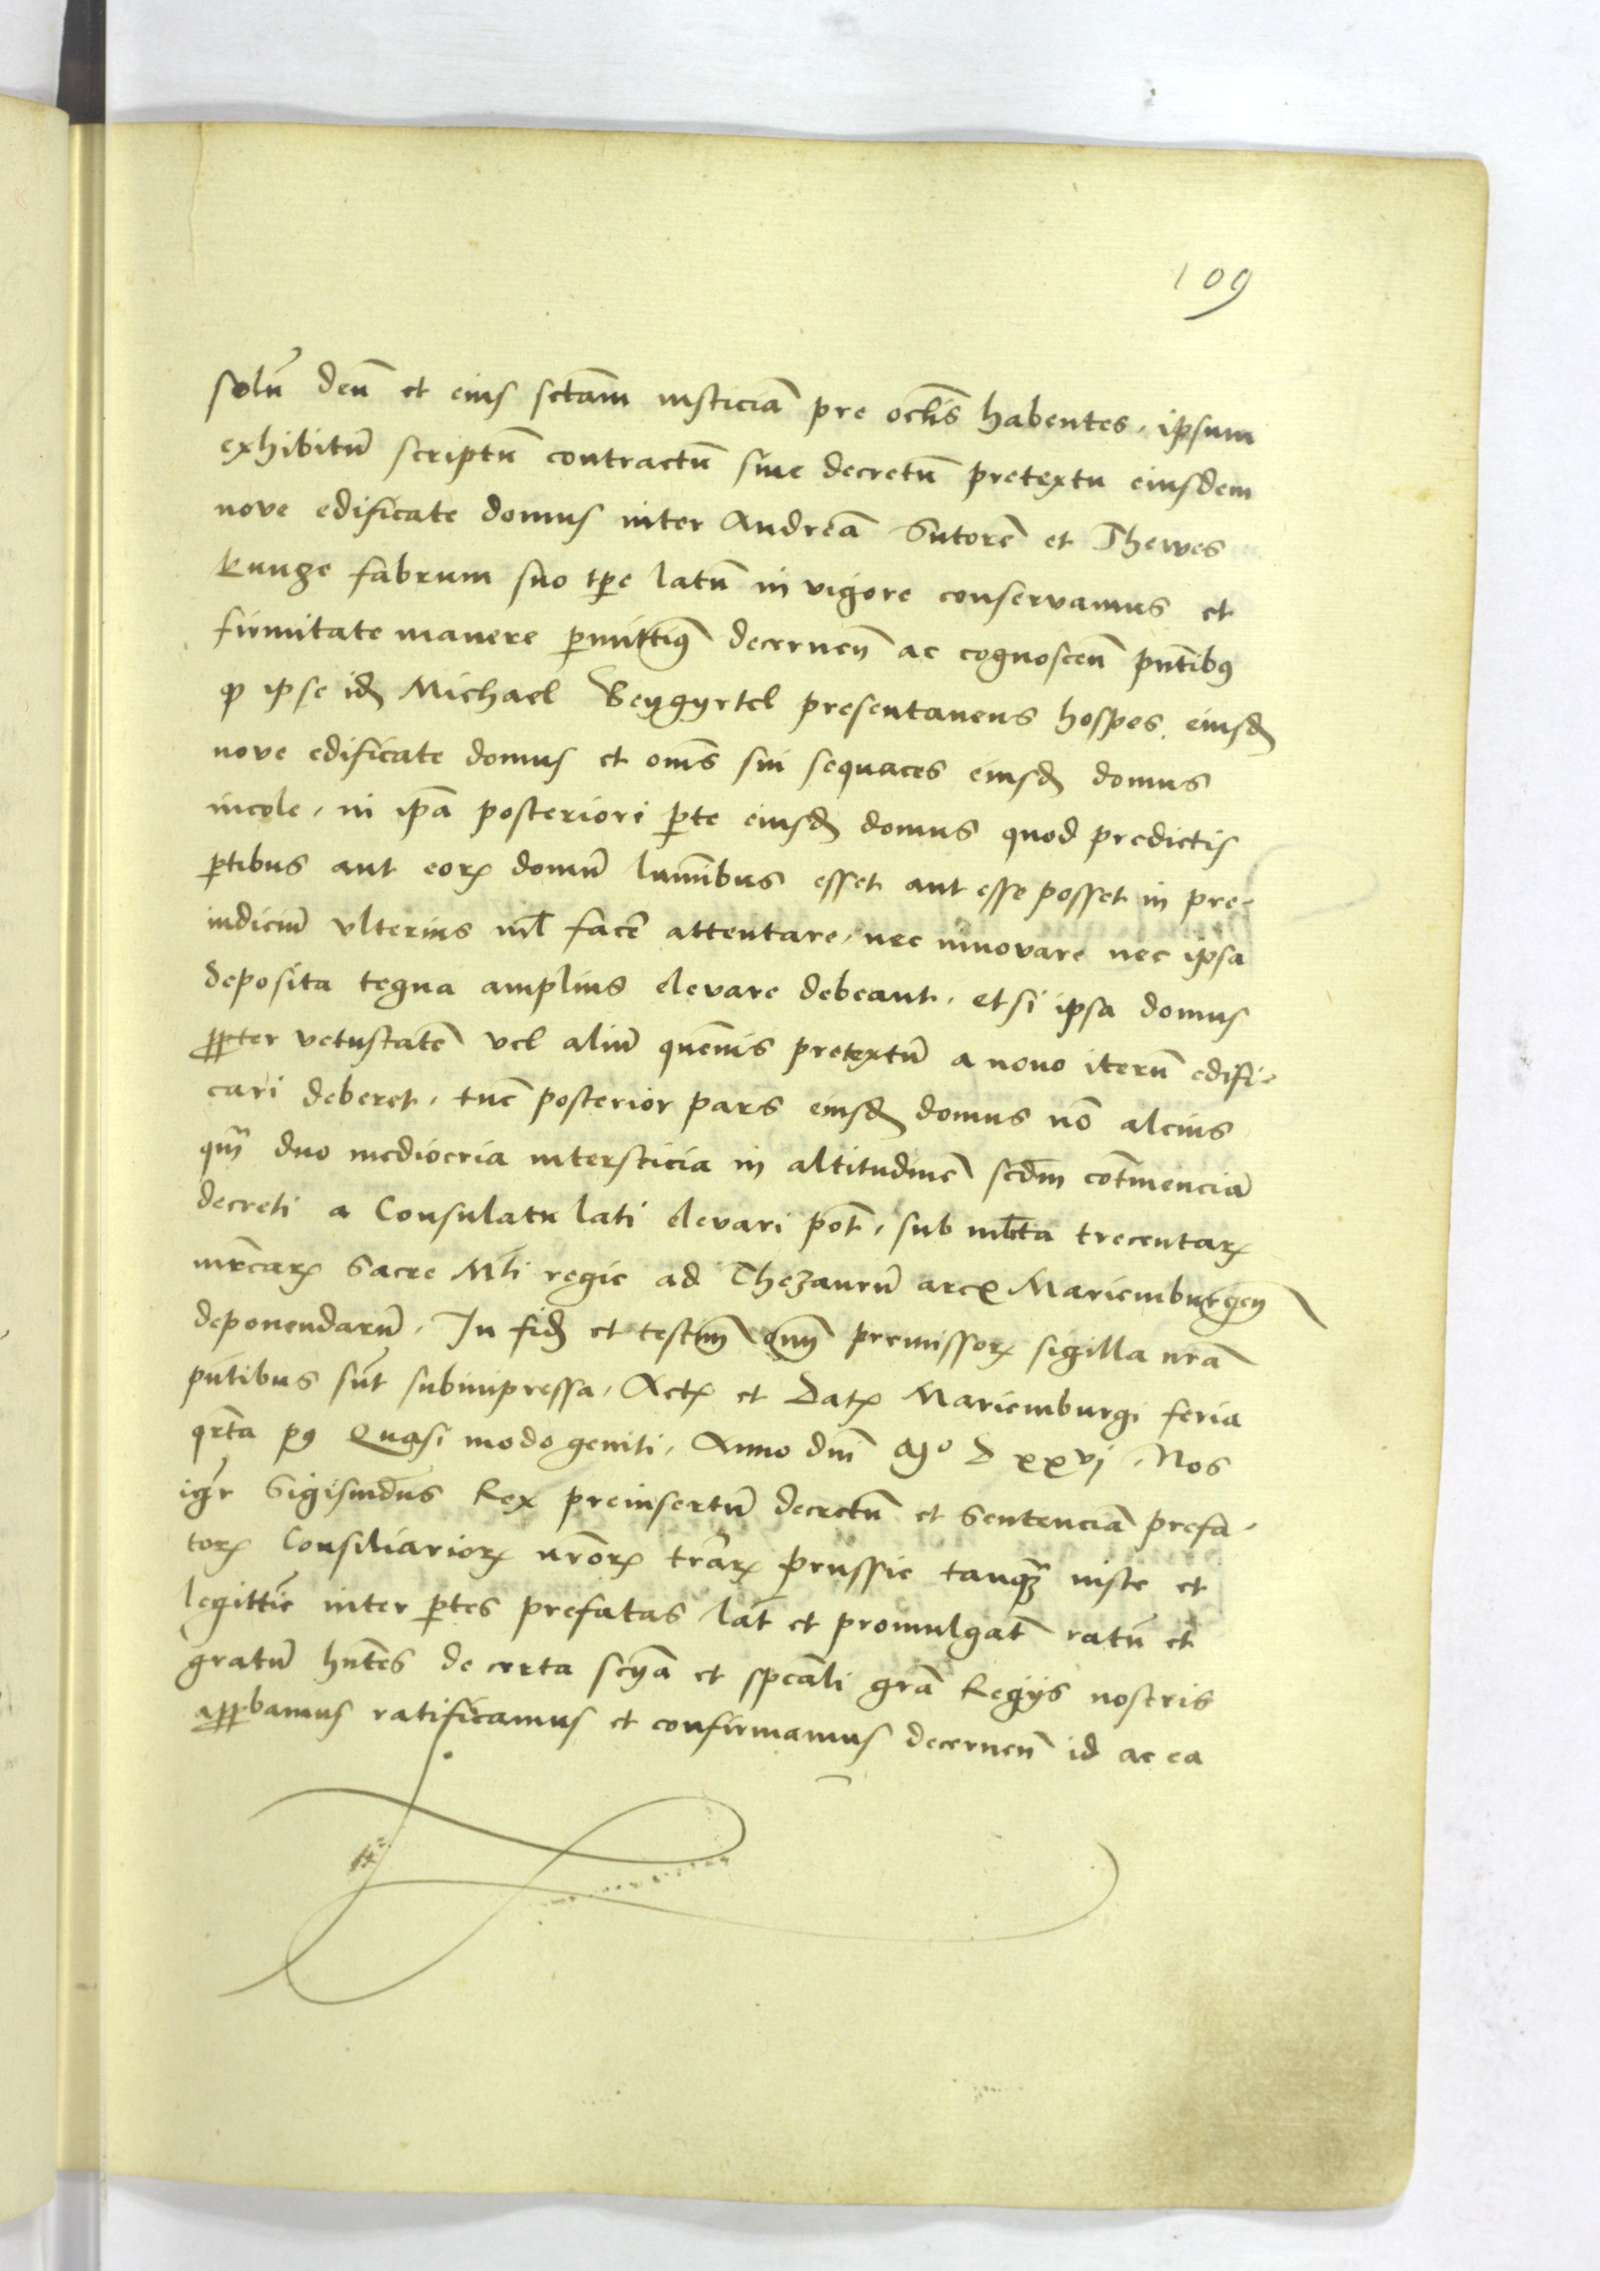 109
solu᷑ deū et eius sctam iusticiā pre oclis habentes, ipsum
exhibitū scriptū contractū siue decretū pretextu eiusdem
nove edificate domus inter Andreā Sutorē et Thewes
Kunze fabrum suo tpe latū in vigore conservamus et
firmitate manere pmittimꝯ decernen̄ ac cognoscen̄ pn̄tibꝯ
ꝙ ipse idꝫ Michael Beygyrtel presentaneus hospes eiusdꝫ
nove edificate domus et om̄s sui sequaces eiusdꝫ domus
incole, in ip̄a posteriori ꝑte eiusdꝫ domus quod predictis
ꝑtibus aut eoꝝ domū luminibus esset aut esse posset in pre-
iudiciū vlterius nil̄ facē attentare, nec innovare nec ipsa
deposita tegna amplius elevare debeant, et si ipsa domus
ꝓpter vetustatē vel aliū quēvis pretextū a novo iterū edifi-
cari deberet, tūc posterior pars eiusdꝫ domus nō alcius
qm̄ duo mediocria intersticia in altitudinē scdm̄ cōtinenciā
decreti a Consulatu lati elevari pōt, sub ml̄cta trecentaꝝ
mr̄caꝝ Sacre Mti regie ad Thezaurū arcꝭ Mariemburgen̄
deponendarū. In fidꝫ et testm̄ om̄ premissoꝝ sigilla nr̄a
pn̄tibus sūt subimpressa, Actꝭ et Datꝭ Mariemburgi feria
qr̄ta pꝯ Quasi modo geniti, Anno dn̄i Mº D xxvj. Nos
igr̄ Sigismdus Rex preinsertū decretū et Sentenciā prefa-
toꝝ Consiliarioꝝ nr̄oꝝ trāꝝ prussie tanqꝫ iuste et
legittīe inter ꝑtes prefatas lat̄ et promulgat̄ ratū et
gratū hn̄tes de certa scīa et spēali grā Regijs nostris
aꝓbamus ratificamus et confirmamus decernen̄ id ac ea